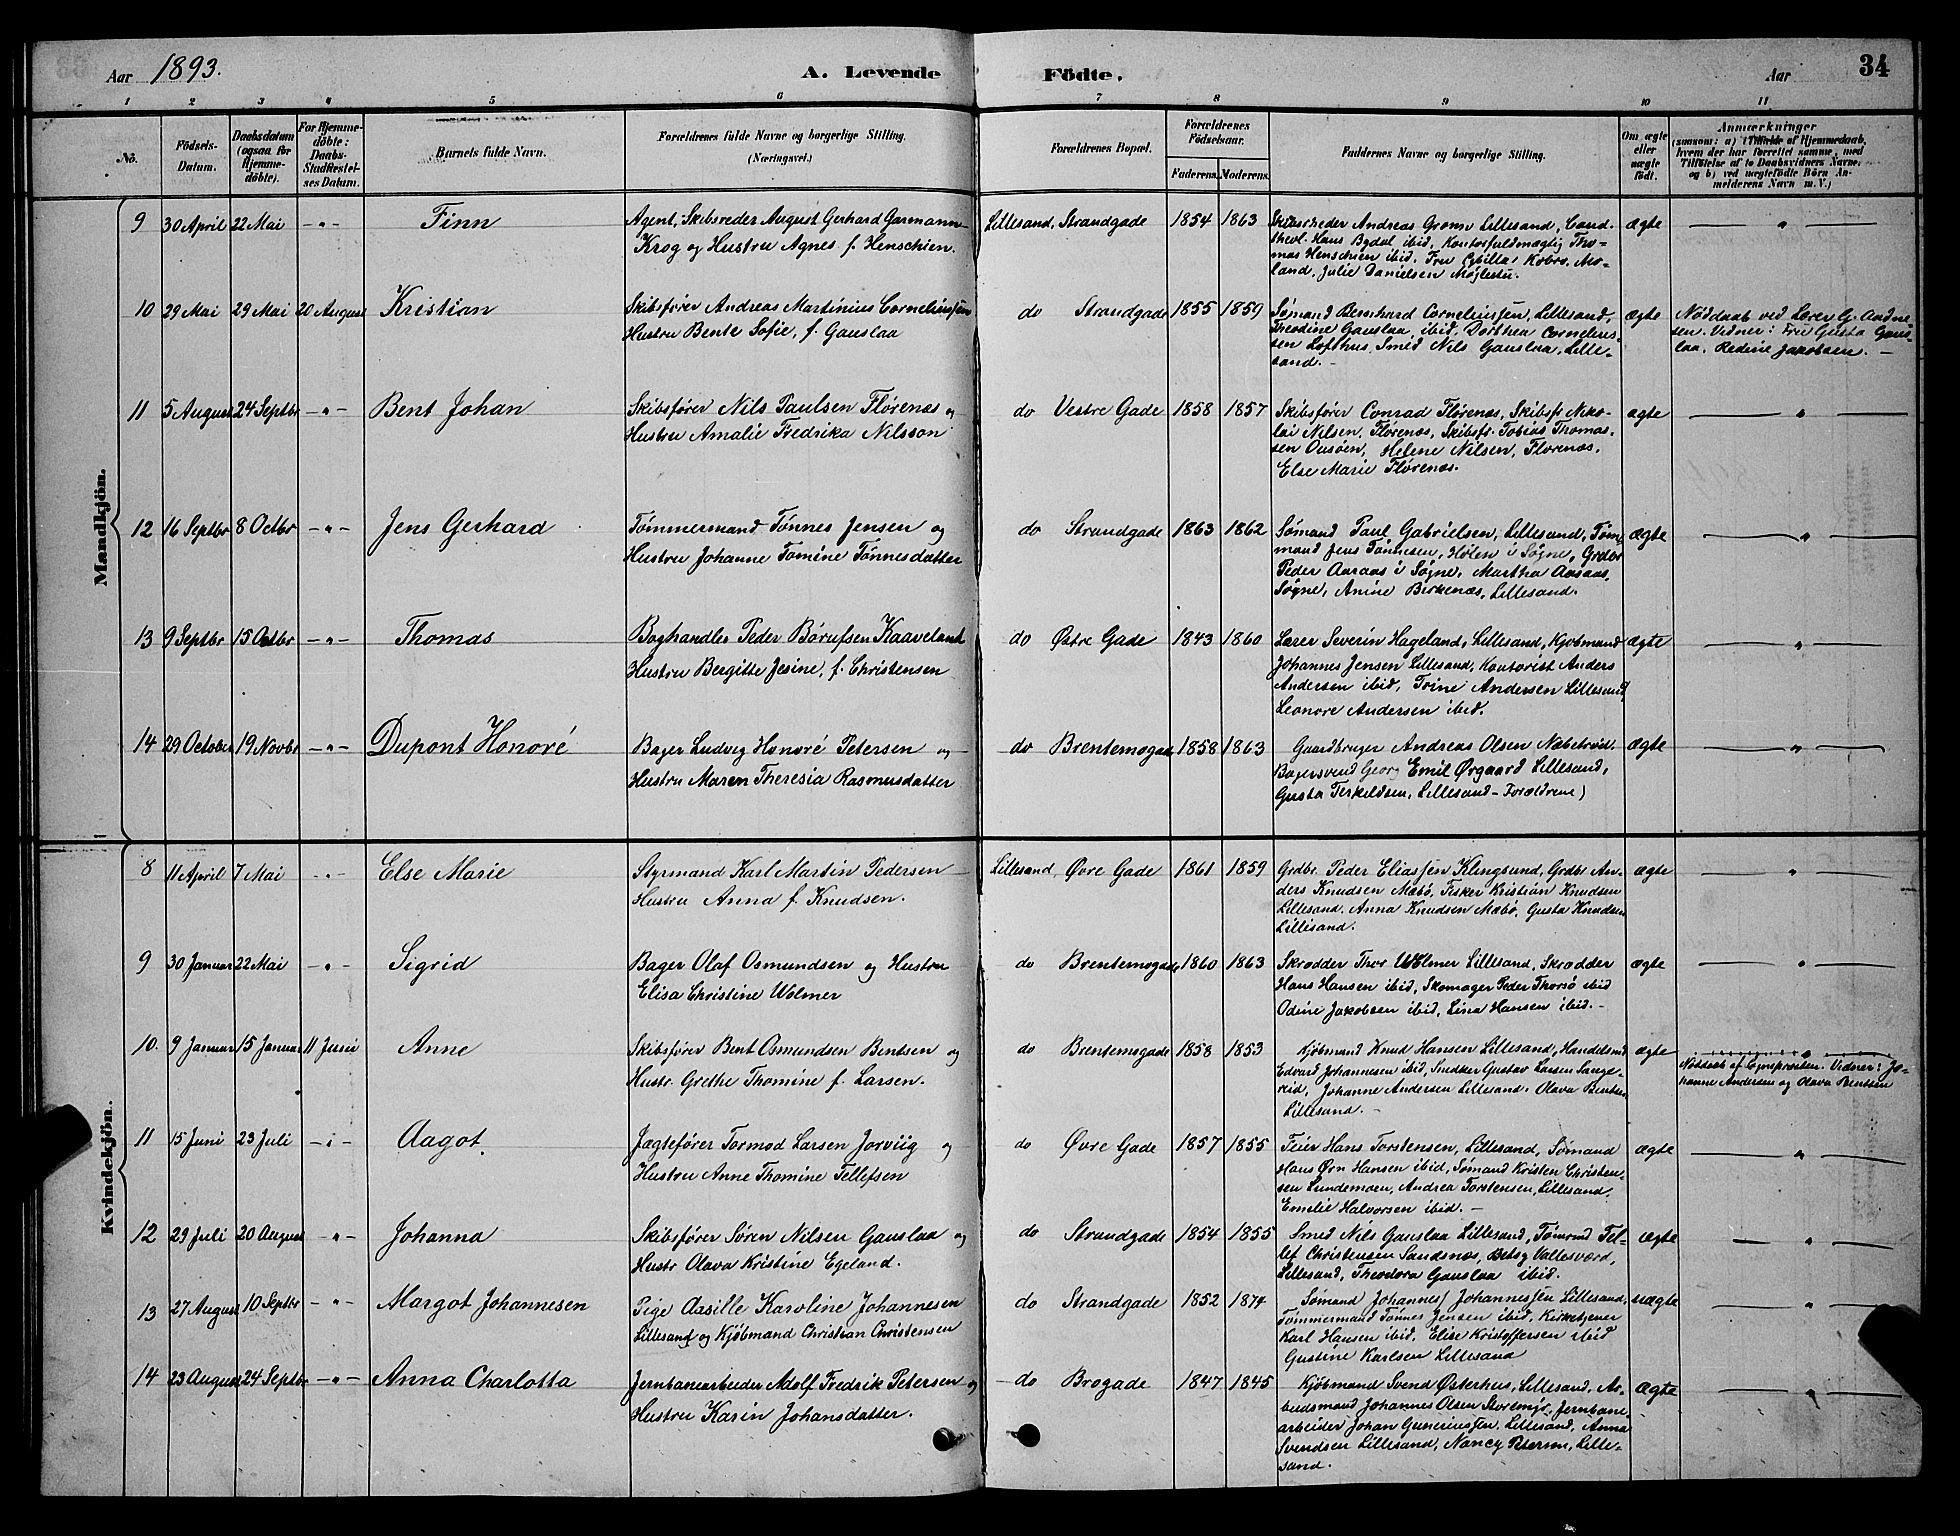 Aar 1893. A. Levende Födte. Aar 34
1 2 3 4 5 6 7 8 9 10 11
No.
Födsels-Datum.
Daabsdatum (ogsaa for Hjemme-döbte).
For Hjemme-döbte: Daabs-Stadfæstelses Datum.
Barnets fulde Navn.
Forældrenes fulde Navne og borgerlige Stilling. (Næringsvei.)
Forældrenes Bopæl.
Forældrenes Födselsaar.
Faderens. Moderens.
Faddernes Navne og borgerlige Stilling.
Om ægte eller uægte födt.
Anmærkninger
(saasom: a) Tilfælde af Hjemmedaab, hvem der har forrettet samme, med Tilföielse af to Daabsvidners Navne, og b) ved uægtefödte Börn Anmelderens Navn m. V.)
Mandkjön.
9 30 April 22 Mai -"- Finn
Agent, Skibsreder August Gerhard Garmann
Krog og Hustru Agnes f. Henschien.
Lillesand, Strandgade 1854 1863
Skibsreder Andreas Grom Lillesand, Cand.
theol. Hans Bydal ibid, Kontorfuldmægtig Tho-
mas Henschien ibid. Fru Cybilla Kobro, Mo-
land, Julie Danielsen Møglestu.
ægte "
10 29 Mai 29 Mai 20 August Kristian
Skibsfører Andreas Martinius Corneliussen
Hustru Bente Sofie, f. Gauslaa
do Strandgade 1855 1859
Sømand Bernhard Corneliussen, Lillesand,
Theodine Gauslaa ibid, Dorthea Cornelius-
sen Lofthus, Smed Nils Gauslaa, Lille-
sand.-
ægte
Nøddaab ved Lærer G. Andne-
sen. Vidner: Fru Gusta Gaus-
laa, Redine Jakobsen. -
11 5 August 24 Septbr -"- Bent Johan
Skibsfører Nils Paulsen Flørenæs og
Hustru Amalie Fredrika Nilsson
do Vestre Gade 1858 1857
Skibsfører Conrad Flørenæs, Skibsfr. Niko-
lai Nilsen, Flørenæs, Skibsf. Tobias Thomas-
sen Ousøen, Helene Nilsen, Flørenæs,
Else Marie Flørenæs.
ægte "
12 16 Septbr 8 Octbr -"- Jens Gerhard
Tømmermand Tønnes Jensen og
Hustru Johanne Tomine Tønnesdatter
do Strandgade 1863 1862
Sømand Paul Gabrielsen, Lillesand, Tøm-
mand Jens Tønnesen, Hølen i Søgne, Grdbr
Peder Aaraas i Søgne, Martha Aaraas,
Søgne, Anine Birkenæs, Lillesand.
ægte "
13 9 Septbr 15 Octbr -"- Thomas
Boghandler Peder Børufsen Kaaveland
Hustru Bergitte Jesine, f. Christensen
do Østre Gade 1843 1860
Lærer Severin Hageland, Lillesand, Kjøbmand
Johannes Jensen Lillesand, Kontorist Anders
Andersen ibid, Trine Andersen Lillesand
Leonore Andersen ibid.
ægte "
14 29 October 19 Novbr -"- Dupont Honoré
Bager Ludvig Honoré Petersen og
Hustru Maren Theresia Rasmusdatter
do Brentemogade 1858 1863
Gaardbruger Andreas Olsen Næbetrød
Bagersvend Georg Emil Ørgaard Lillesand,
Gusta Terkeldsen, Lillesand - Forældrene)
ægte "
Kvindekjön.
8 11 April 7 Mai -"- Else Marie
Styrmand Karl Martin Pedersen
Hustru Anna f. Knudsen.
Lillesand, Øvre Gade 1861 1859
Grdbr. Peder Eliassen Klingsund, Grdbr An-
ders Knudsen Mæbø, Fisker Kristian Knudsen
Lillesand, Anna Knudsen Mæbø, Gusta Knudsen
Lillesand.
ægte "
9 30 Januar 22 Mai -"- Sigrid
Bager Olaf Osmundsen og Hustru
Elisa Christine Wolmer
do Brentemogade 1860 1863
Skrædder Thor Wolmer Lillesand, Skrædder
Hans Hansen ibid, Skomager Peder Thorsø ibid
Odine Jakobsen ibid, Lina Hansen ibid.-
ægte "
10. 9 Januar 15 Januar 11 Juni Anne
Skibsfører Bent Osmundsen Bentsen og
Hustr. Grethe Thomine f. Larsen.
do Brentemogade 1858 1853
Kjøbmand Knud Hansen Lillesand, Handelsmd
Edvard Johannesen ibid, Snedker Gustav Larsen Sange-
reid, Johanne Andersen Lillesand. Olava Bentsen
Lillesand. -
ægte "
Nøddaab af Sognepresten. Vidner: Jo-
hanne Andersen og Olava Bentsen
11 15 Juni 23 Juli Aagot.
Jagtefører Tormod Larsen Jorviig og
Hustru Anne Thomine Tellefsen
do Øvre Gade 1857 1855
Feier Hans Torstensen, Lillesand, Sømand
Hans Ørn Hansen ibid, Sømand Kristen Christen-
sen Lundemoen, Andrea Torstensen, Lillesand,
Emelie Halvorsen ibid. -
ægte "
12 29 Juli 20 August -"- Johanna
Skibsfører Søren Nilsen Gauslaa og
Hustr Olava Kristine Egeland.
do Strandgade 1854 1855
Smed Nils Gauslaa Lillesand, Tømrmd Tel-
lef Christensen Sandsnæs, Betsy Vallesværd,
Lillesand, Theodora Gauslaa ibid.
ægte "
13 27 August 10 Septbr -"- Margot Johannesen
Pige Aasille Karoline Johannesen
Lillesand og Kjøbmand Christian Christensen
do Strandgade 1852 1874
Sømand Johannes Johannessen Lillesand,
Tømmermand Tønnes Jensen ibid, Kirketjener
Karl Hansen ibid, Elise Kristoffersen ibid
Gustine Karlsen Lillesand
uægte "
14 23 August 24 Septbr -"- Anna Charlotta
Jernbanearbeider Adolf Fredrik Petersen og
Hustru Karin Johansdatter.
do Brogade 1847 1845
Kjøbmand Svend Østerhus, Lillesand, Ar-
beidsmand Johannes Olsen Storemyr, Jernbane-
arbeider Johan Guneriussen, Lillesand, Anna
Svendsen Lillesand, Nancy Petersen, Lille-
sand.
ægte "